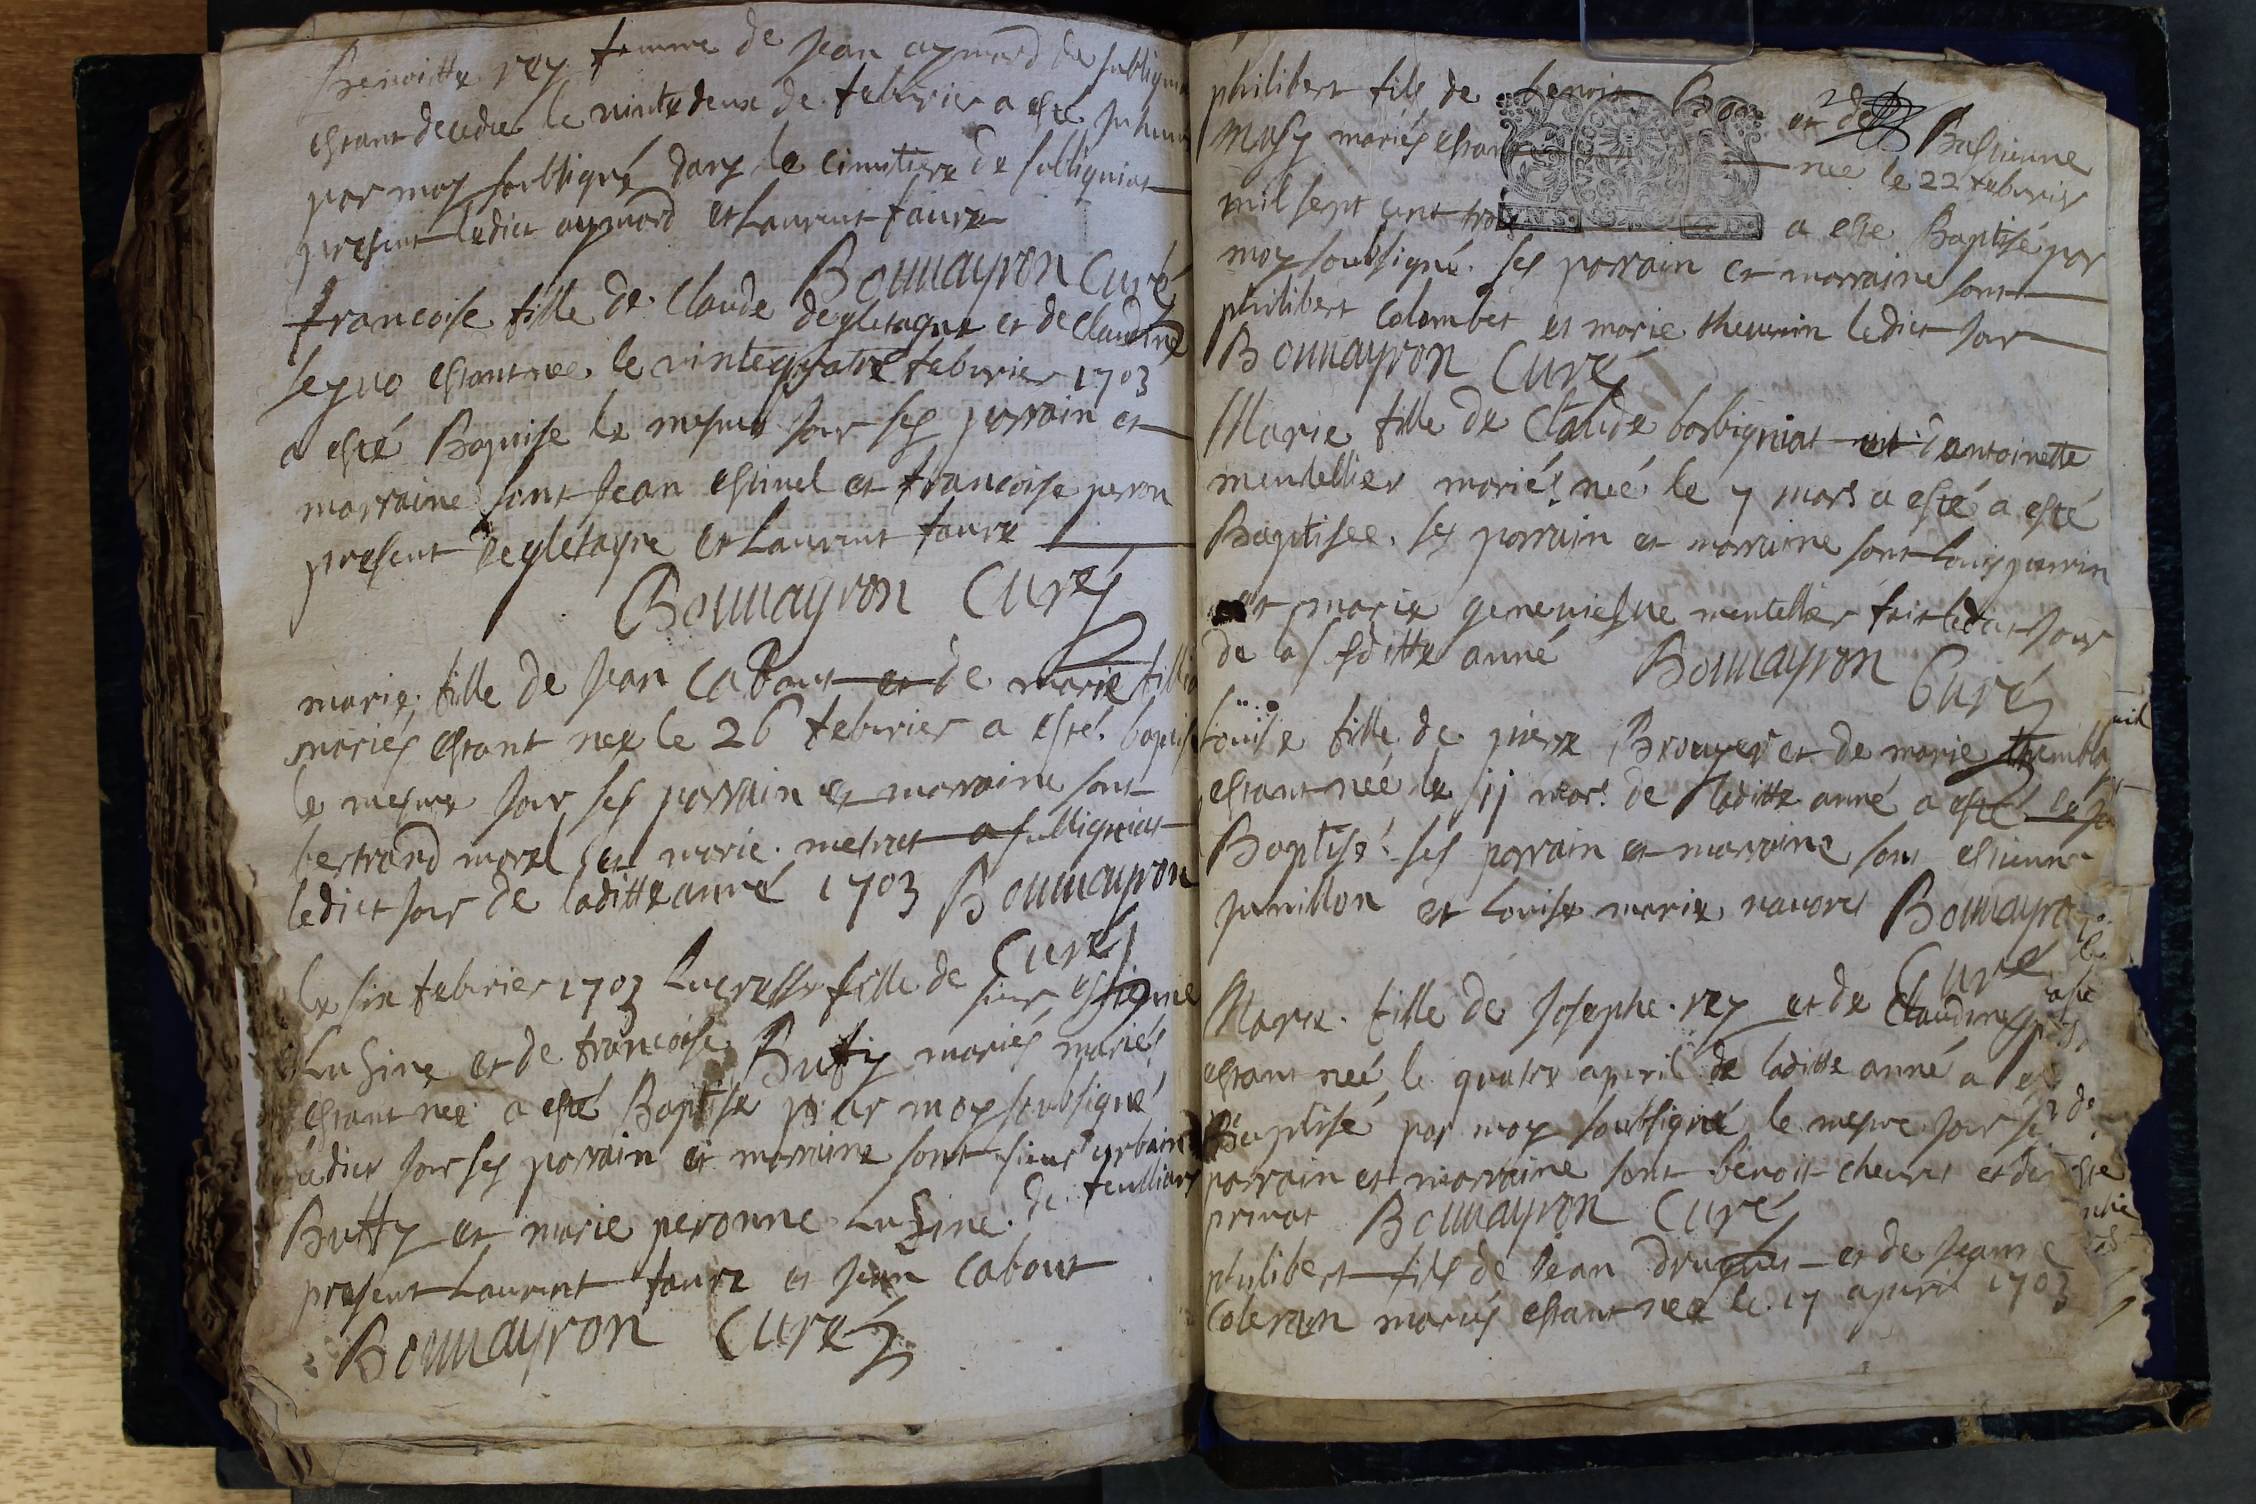 Benoitte rey femme de Jean aymard de subligni
estant decedee le vintedeux de feburier a esté Inhum
par moy soubsigné dans le cimitiere de subligniat
present ledict aymard et Laurent faure
Boumayron Curé
francoise fille de Claude degletagne et de Claudine
estant nee le vintequatre feburier 1703
a esté Baptise le mesme Jour ses parrain et
marraine sont Jean estinel et francoise perron
present degletagne et Laurent faure
Boumayron Curé
marie fille de Jean Cabout et de marie
mariés estant nee le 26 feburier a esté baptis
le mesme Jour ses parrain et marraine sont
bertrand morel et marie mesrat a subligniat
ledict Jour de laditte anné 1703 Boumayron
Curé
le six feburier 1703 Lucresse fille de sieur estienne
Lusine et de francoise Buffy mariés mariés
estant nee a esté Baptise par moy soubsigné
ledict Jour ses parrain et marraine sont sieur urbain
Buffy et marie peronne Lusine de
present Laurent faure et Jean Cabout
Boumayron Curé
philibert fils de benoit et de Bastienne
mariés estant née le 22 feburier
mil sept cent trois a esté Baptisé par
moy soubsigné ses parrain et marraine sont
philibert Colombet et marie thevenin ledict Jour
Boumayron Curé
Marie fille de Claude barbigniat et d'antoinette
mentellier mariés neé le 7 mars a esté a esté
Baptisee ses parrain et marraine sont Louys perrin
et marie geneviesve mentellier fait ledict Jour
de la susditte anné Boumayron Curé
Louise fille de pierre Brouyer et de marie trembla
estant neé le 11 mars de laditte anné a esté
Baptisé ses parrain et marraine sont estienne
Junillon et Louise marie navoret Boumayro
Curé
Marie fille de Josephe rey et de Claudine
estant neé le quatre apvril de laditte anné a es
Baptisé par moy soubsigné le mesme Jour
parrain et marraine sont benoit et
privat Boumayron Curé
philibert fils de Jean et de Jeanne
mariés estant nee le 17 apvril 1703